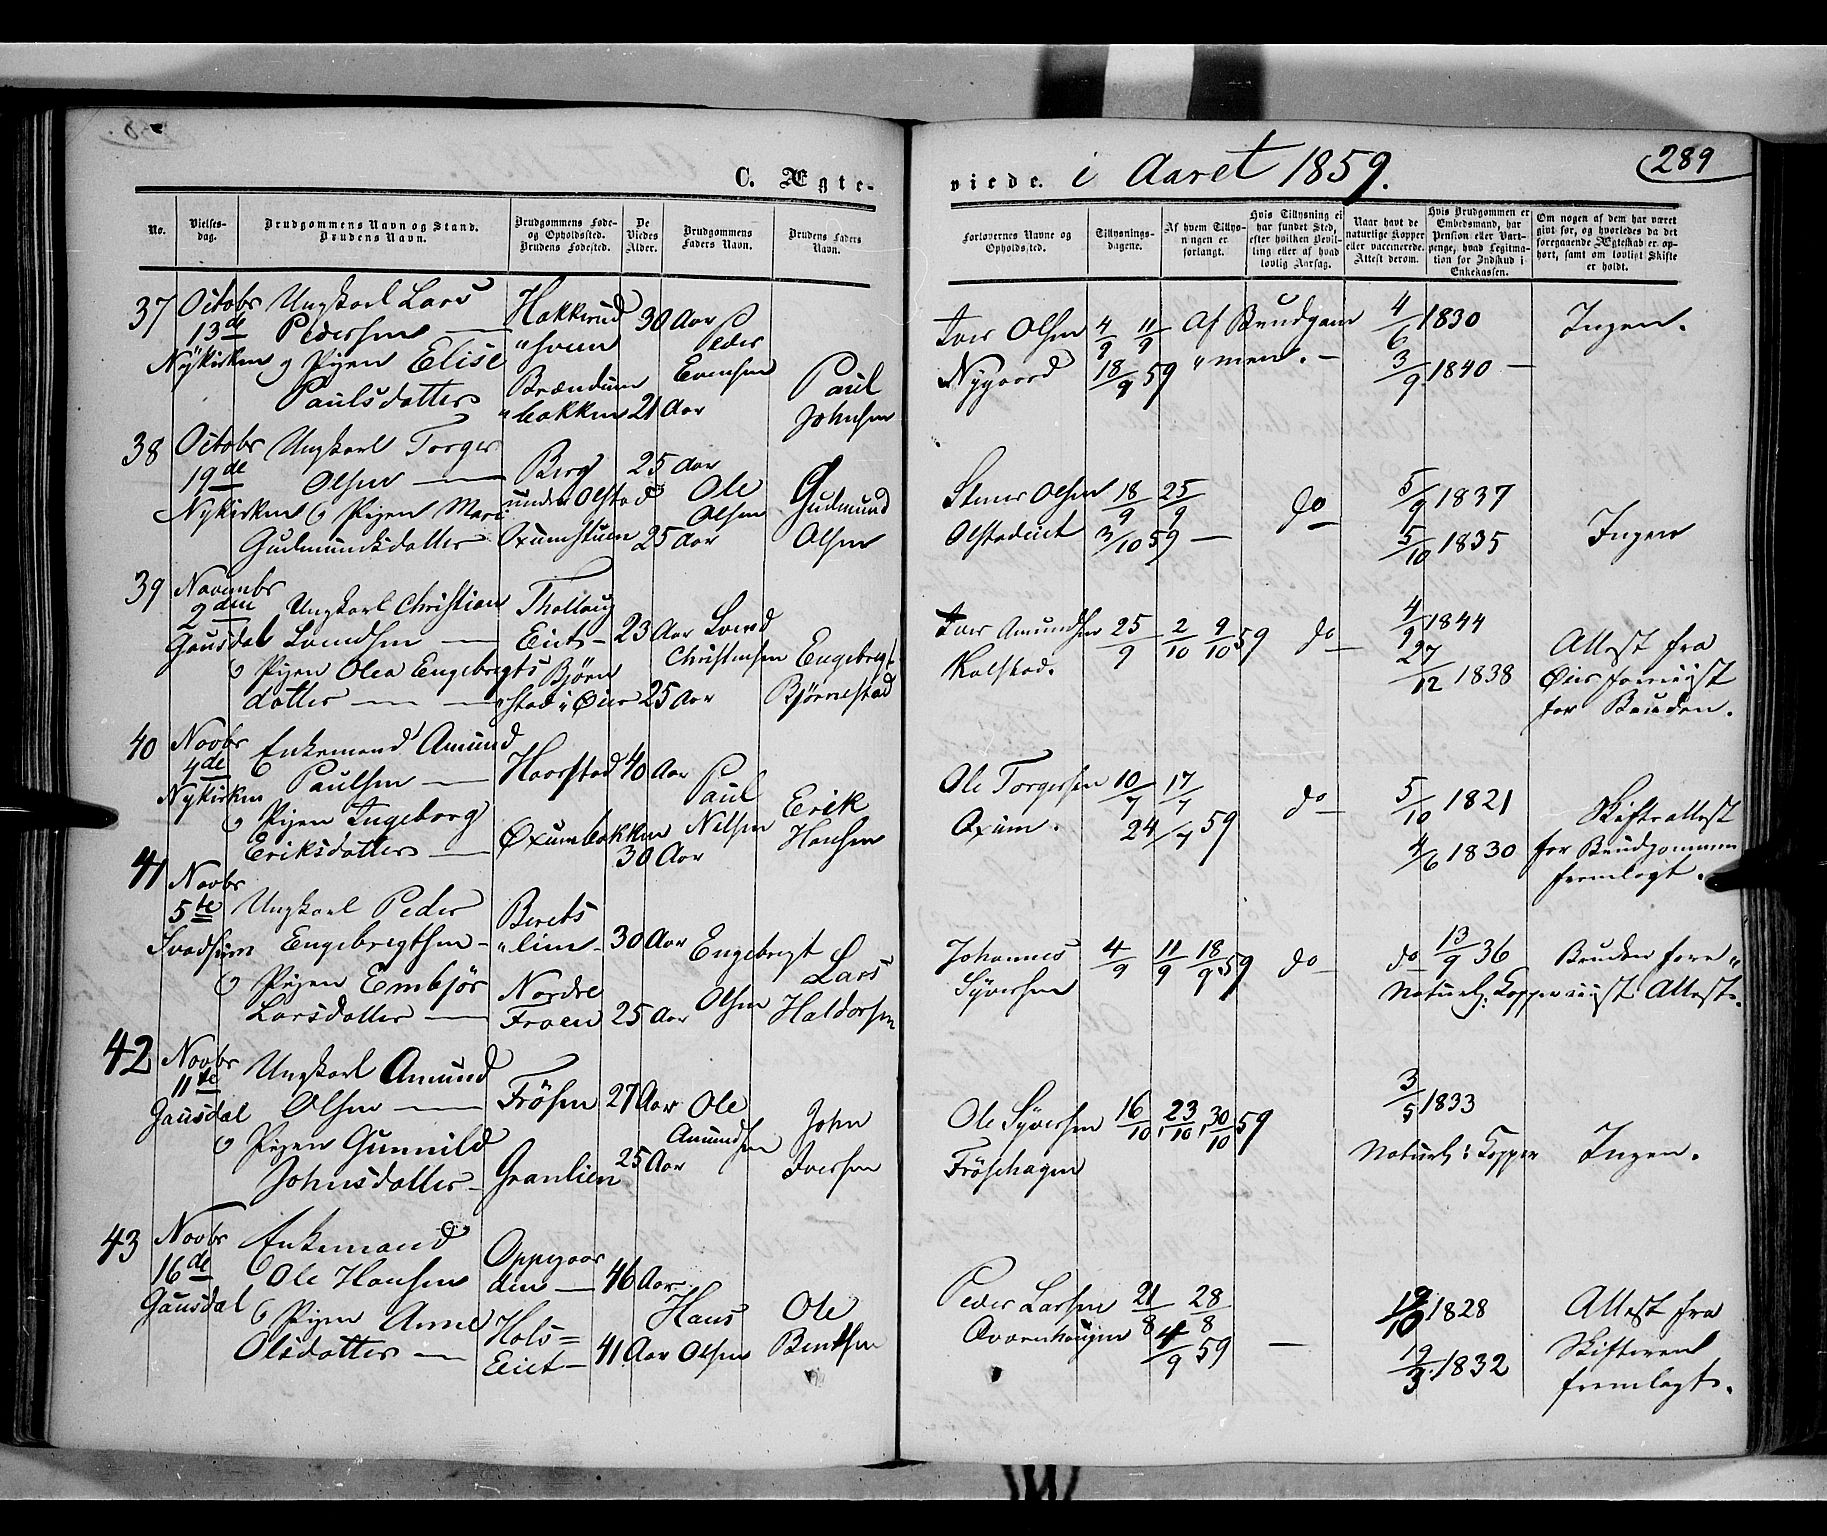 C. Ægte-
viede. i Aaret 1859.
289
No.
Vielses-
dag.
Brudgommens Navn og Stand.
Brudens Navn.
Brudgommens Føde-
og Opholdssted.
Brudens Fødested.
De
Viedes
Alder.
Brudgommens
Faders Navn.
Brudens Faders
Navn.
Forlovernes Navne og
Opholdssted.
Tillysnings-
dagene.
Af hvem Tillys-
ningen er
forlangt.
Hvis Tillysning ei
har fundet Sted,
efter hvilken Bevil-
ling eller af hvad
lovlig Aarsag.
Naar havt de
naturlige Kopper
eller vaccinerede.
Attest derom.
Hvis Brudgommen er
Embedsmand, har
Pension eller Vart-
penge, hvad Legitima-
tion for Indskud i
Enkekassen.
Om nogen af dem har været
gift før, og hvorledes da det
foregaaende Ægteskab er op-
hørt, samt om lovligt Skifte
er holdt.
37
Octobr
13de
Nykirken
Ungkarl Lars
Pedersen
og Pigen Elise
Paulsdatter
Hakkerud
"sveen
Brændum
"bakken
30 Aar
21 Aar
Peder
Evensen
Paul
Johnsen
Iver Olsen
Nygaard
4/9 11/9
18/9 59
Af Brudgom
"men.
4/6 1830
3/9 1840
Ingen.
38
Octobr
19de
Nykirken
Ungkarl Torger
Olsen
og Pigen Mari
Gudmundsdatter
Berg
under Olstad
Oxumstuen
25 Aar
25 Aar
Ole
Olsen
Gudmund
Olsen
Stener Olsen
Olstadeiet
18/9 25/9
3/10 59
do
5/9 1837
5/10 1835
Ingen
39
Novembr
2den
Gausdal
Ungkarl Christian
Larsen
og Pigen Olea Engebregts
datter
Eiet
Bjørn
"stad i Øier
23 Aar
25 Aar
Christensen
Engebregt
Bjørnestad
Iver Amundsen
Kalstad.
25/9 2/10 9/10 59
do
4/9 1844
27/12 1838
Attest fra
Øier foreviist
for Bruden.
40
Novbr
4de
Nykirken
Enkemand Amund
Paulsen
og Pigen Ingeborg
Eriksdatter
Haarstad
Oxumbakken
40 Aar
30 Aar
Paul
Nilsen
Erik
Hansen
Ole Torgersen
Oxum.
10/7 17/7
24/7 59
do
5/10 1821
4/6 1830
Skifteattest
for Brudgommen
fremlagt.
41
Novbr
5te
Svadsum
Ungkarl Peder
Engebregtsen
og Pigen Embjør
Larsdatter
Berets
"lien
Nordre
Froen
30 Aar
25 Aar
Engebregt
Olsen
Lars
Haldorsen
Johannes
Syversen
4/9 11/9 18/9 59
do
do 13/9 36
Naturl: Kopper
Bruden fore"
viist Attest.
42
Novbr
11te
Gausdal
Ungkarl Amund
Olsen
og Pigen Gunnild
Johnsdatter
Frøsen
Granlien
27 Aar
25 Aar
Ole
Amundsen
John
Iversen
Ole Syversen
Frøsehagen
16/10, 23/10, 30/10 59
3/5 1833
Naturl: Kopper
Ingen.
43
Novbr
16de
Gausdal
Enkemand
Ole Hansen
og Pigen Anne
Olsdatter
Oppigaar
den
Hols=
Eiet
46 Aar
41 Aar
Hans
Olsen
Ole
Bentsen
Peder Larsen
21/8 28/8
4/9 59
1828
19/3 1832
Attest fra
Skifteret
fremlagt.